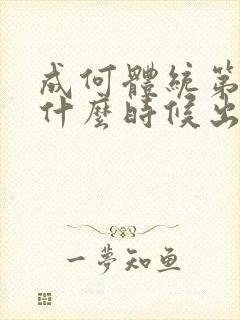 成何體統第
什麼時候出
一夢知魚